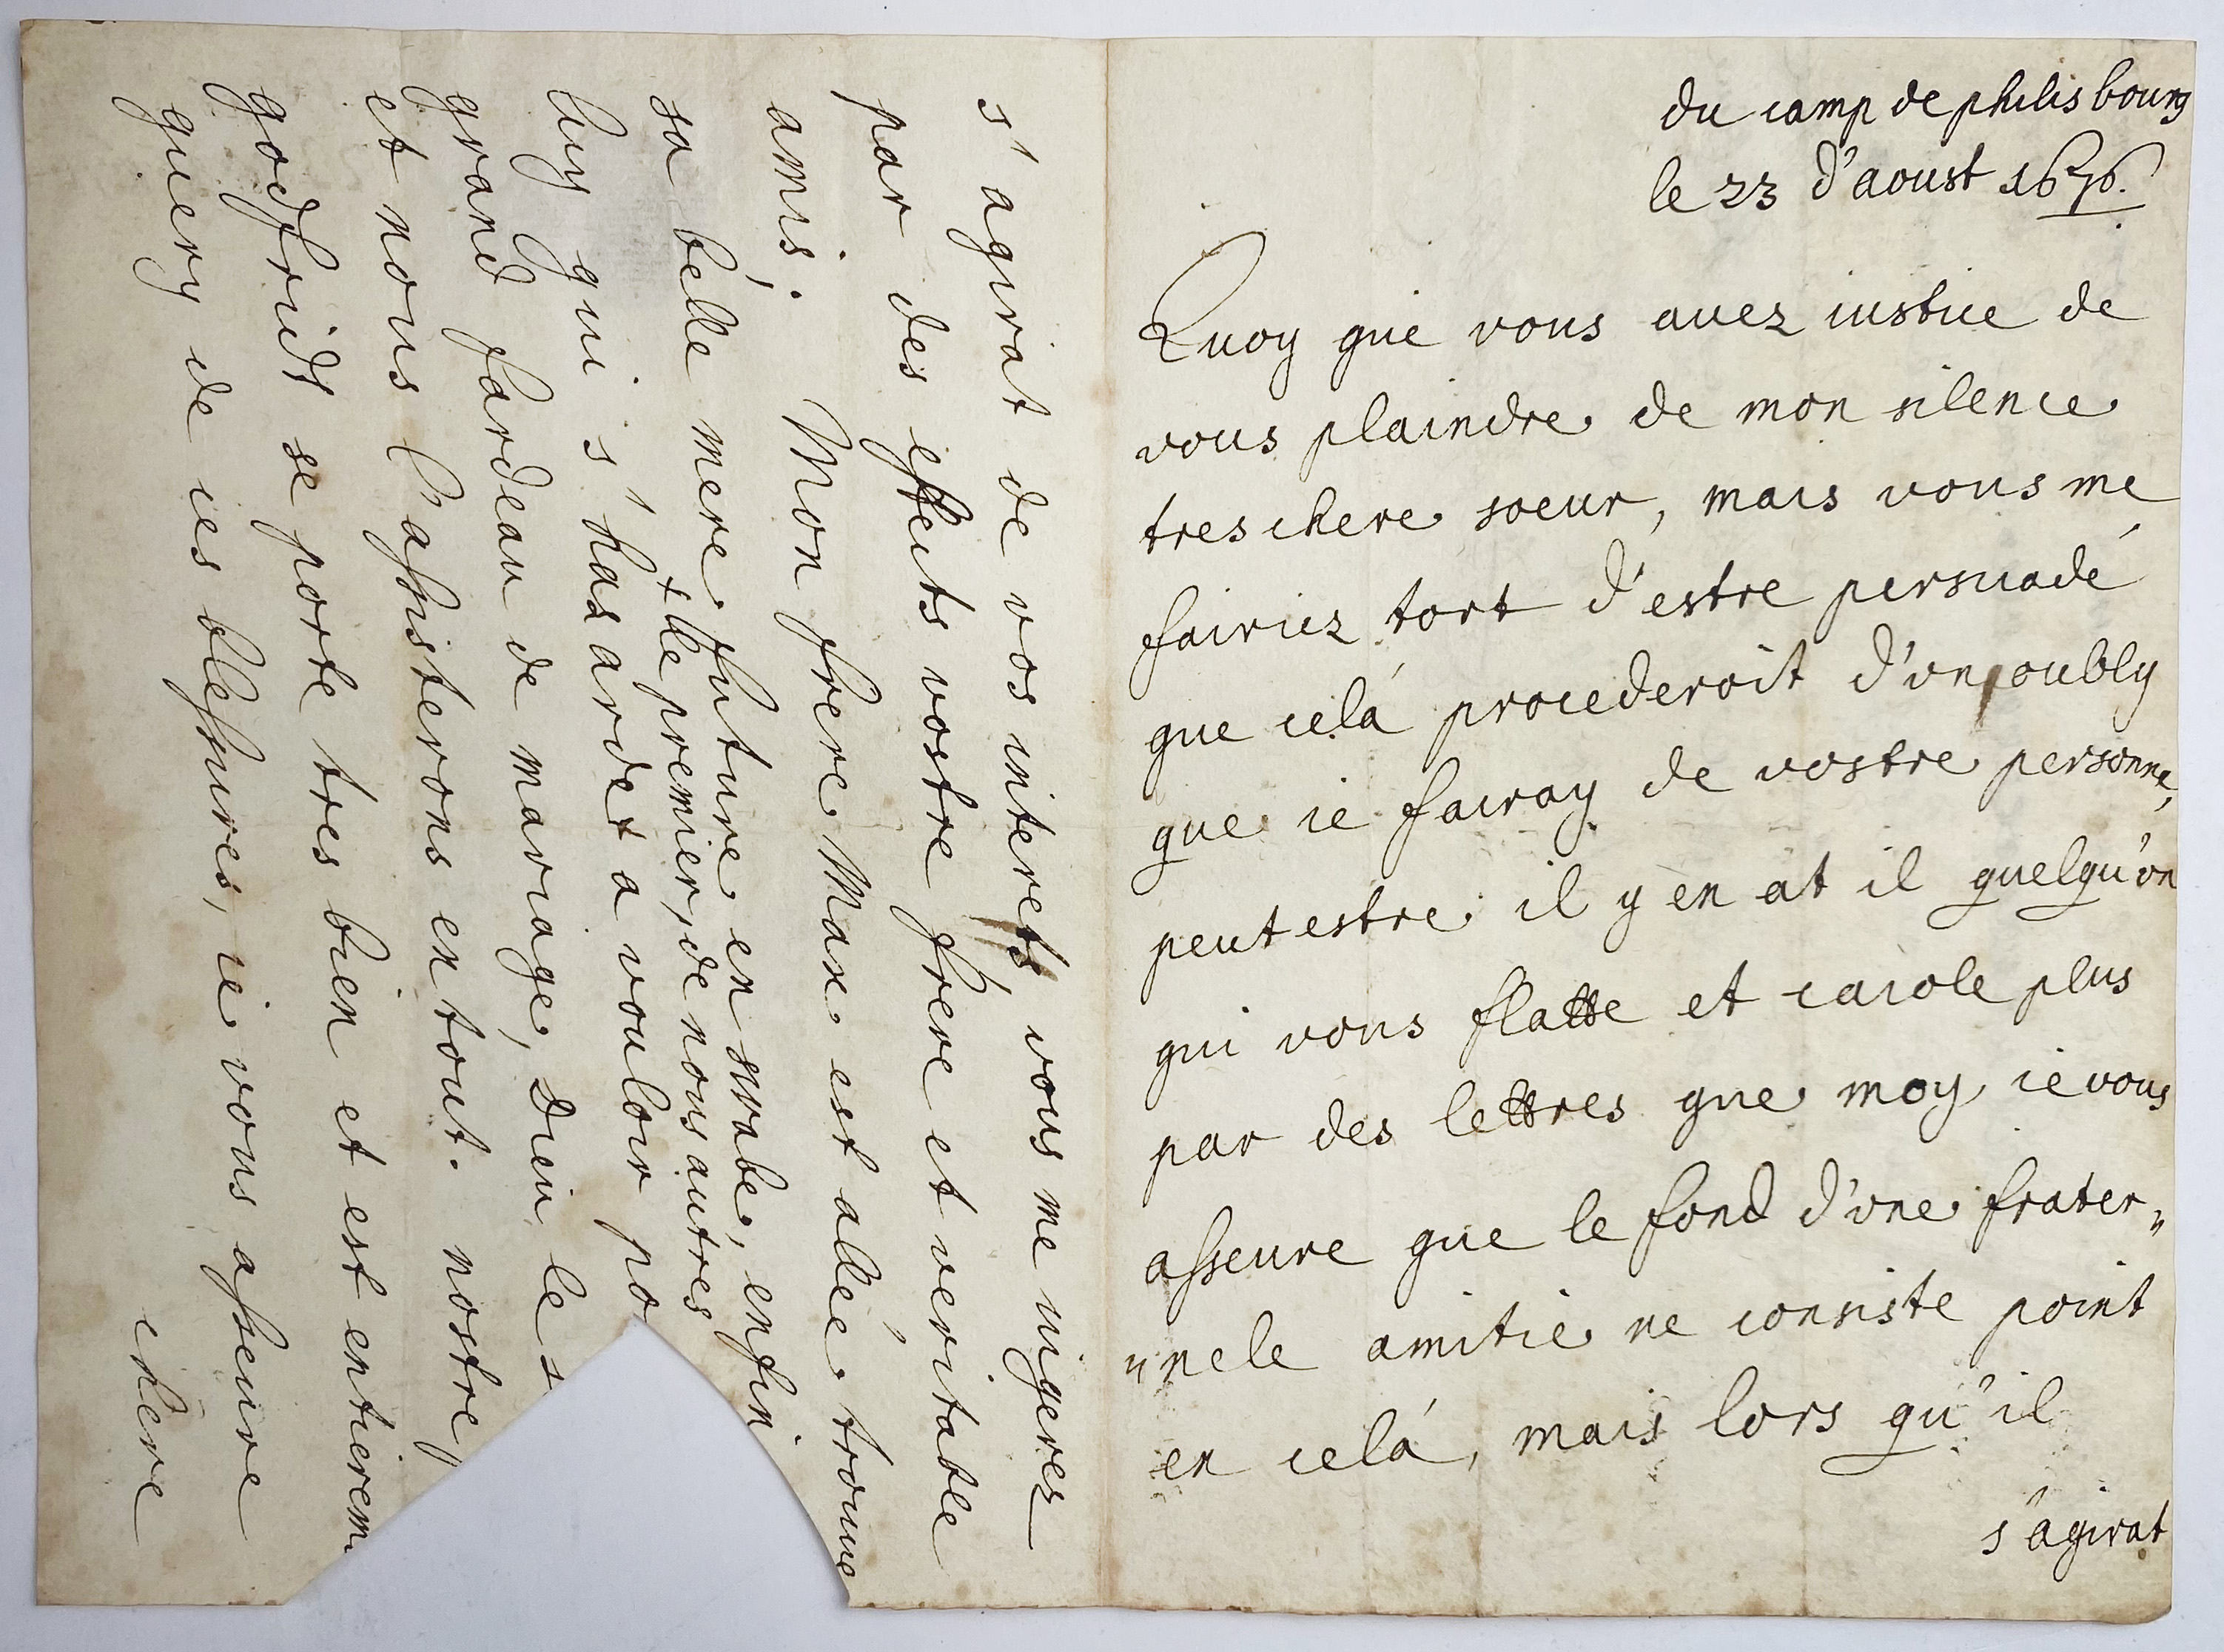 du camp de philisbourg
le 23 d'aoust 1676.
Quoy que vous avez iustice de
vous plaindre de mon silence
tres chere soeur, mais vous me
fairiez tort d'estre persuadé
que celà procederoit d'vn oubly
que ie fairay de vostre personne,
peut estre il y en at il quelqu'vn
qui vous flatte et caiole plus
par des lettres que moy, ie vous
asseure que le fond d'vne frater„
„nele amitié ne consiste point
en celà, mais lors qu'il
s'agirat
s'agirat de vos interets, vous me iugerez
par des effects vostre frere et veritable
amis. Mon frere Max est allée trouue
sa bélle mere future en svvabe, enfin
+ le premier, de nous autres
luy qui s'hasarde + a vouloir po
grand fardeau de mariage, Dieu le
et nous l'assisterons en tout. nostre
godfridt se porte tres bien et est entierem
guery de ces blessures, ie vous asseure
chere